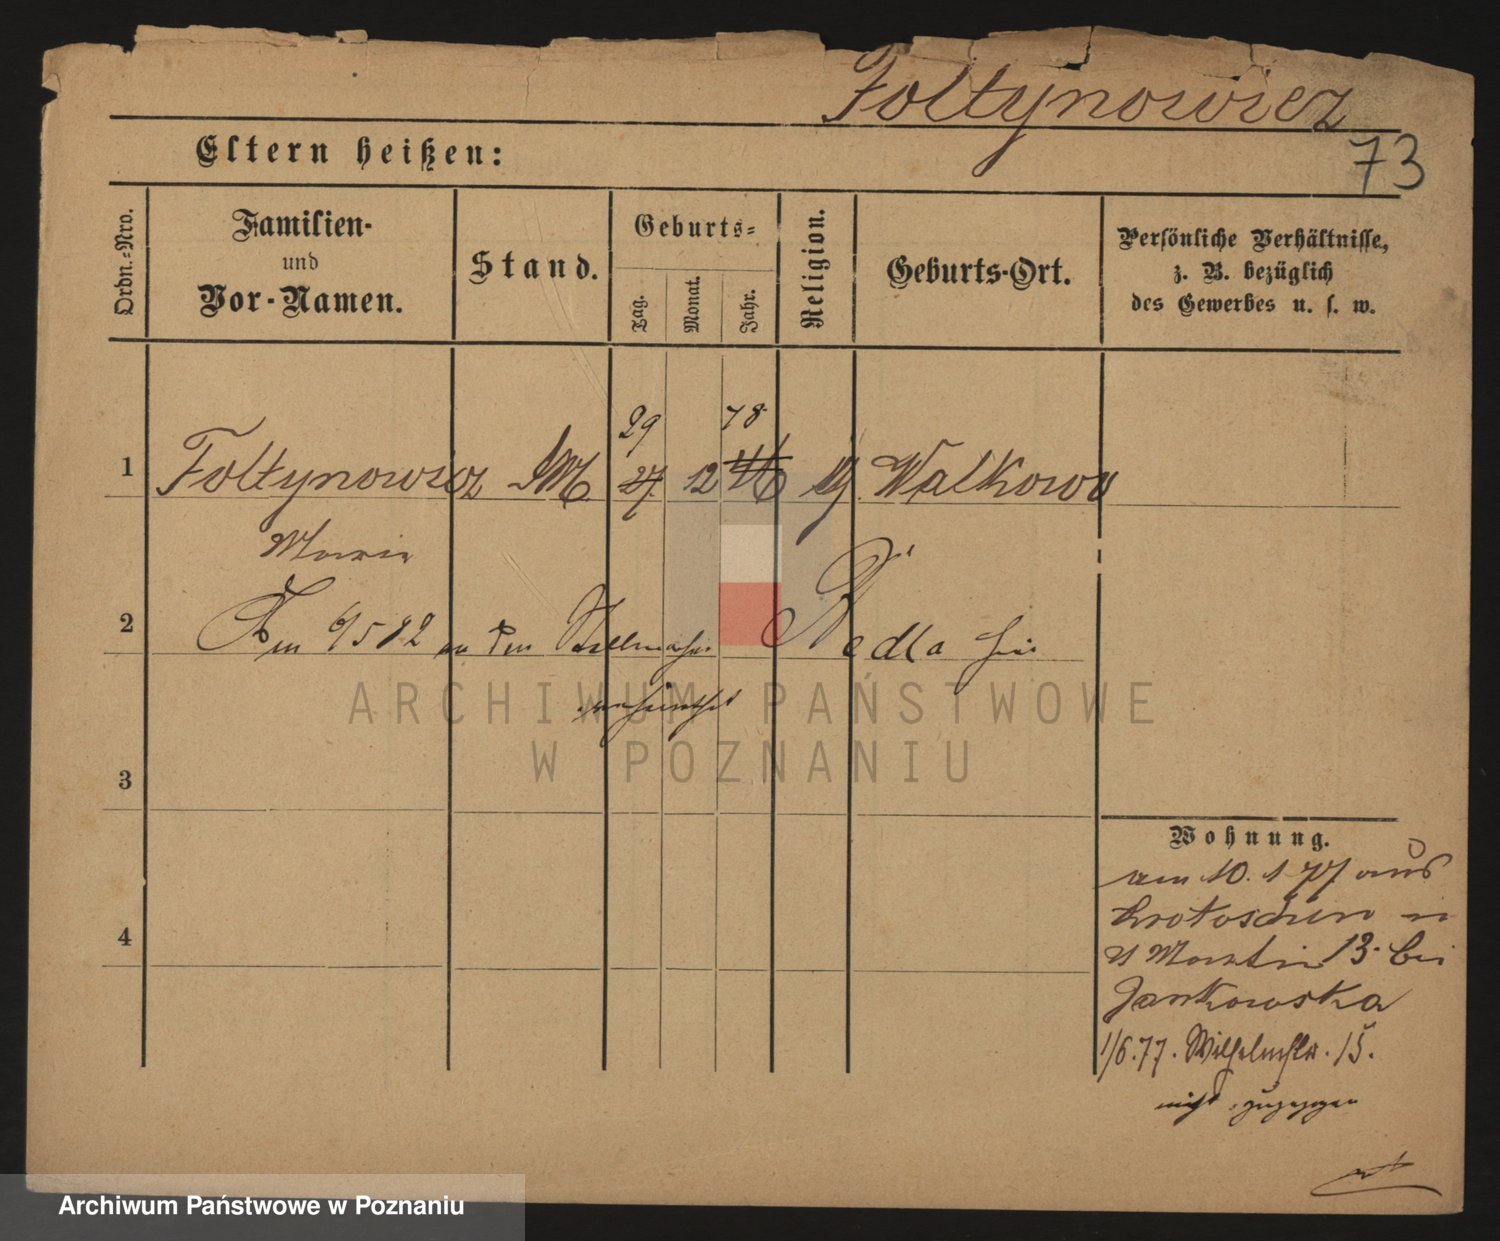 Foltynowicz
73
Eltern heißen:
Ordn.-Nro.
Familien-
und
Vor-Namen.
Stand.
Geburts-
Tag.
Monat.
Jahr.
Religion.
Geburts-Ort.
Persönliche Verhältnisse,
z. B. bezüglich
des Gewerbes u. s. w.
29 78
1 Foltynowicz 27. 12 Walkowo
Marie
2 Am 6/5 82 an den Stellmacher Redla hier
verheirathet
3
4
Wohnung.
am 10. 1 77 aus
Krotoschin in
St Martin 13. bei
Jankowska
1/6.77. Wilhelmstr. 15.
nicht zugezogen
ARCHIWUM PAŃSTWOWE
W POZNANIU
Archiwum Państwowe w Poznaniu